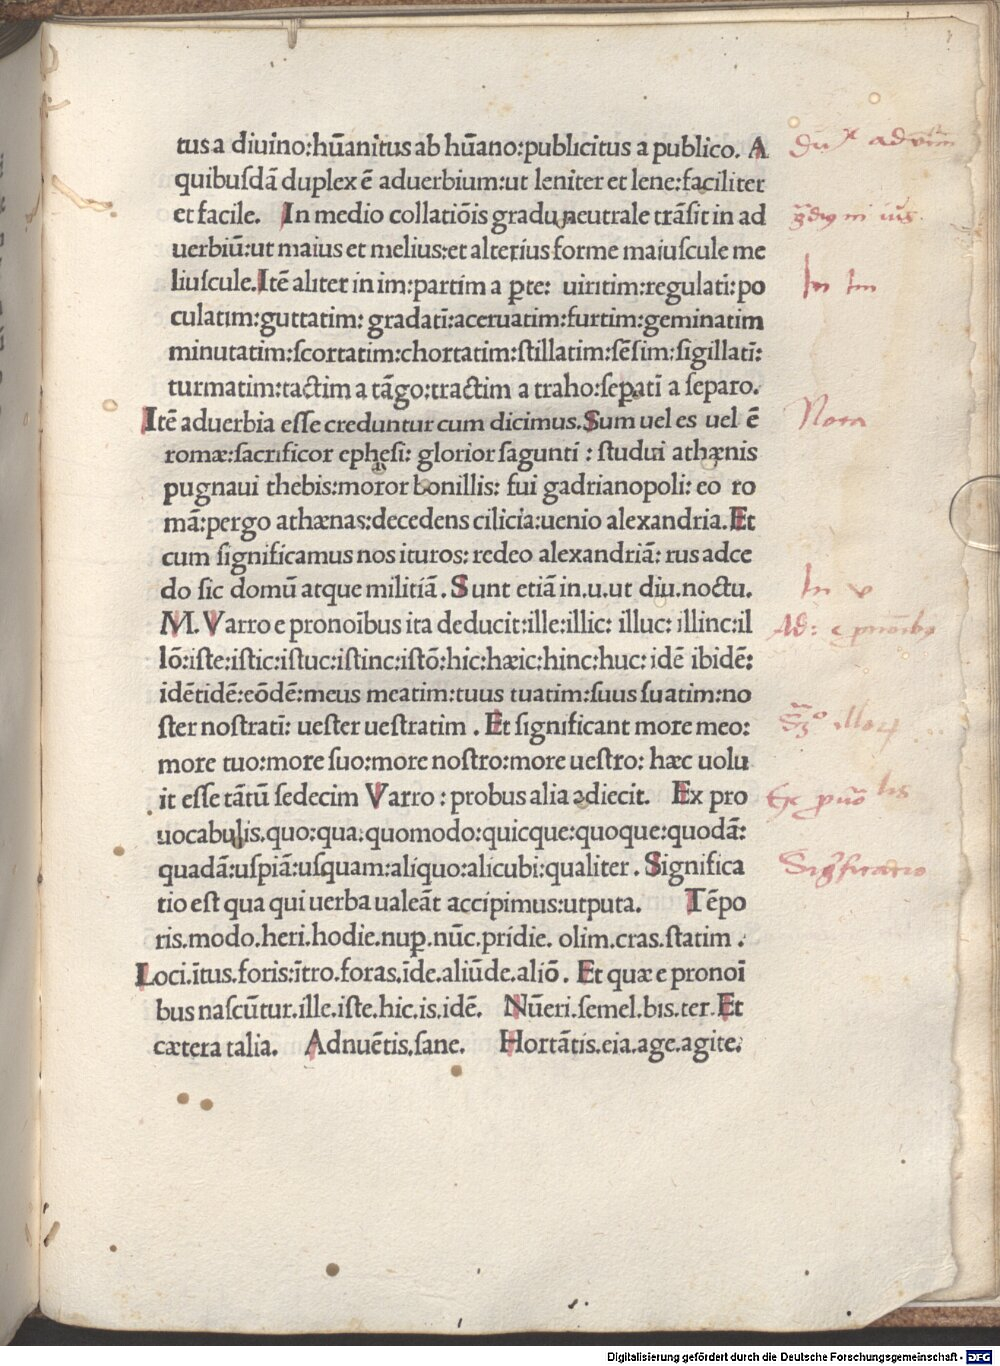 tus a diuino:hūanitus ab hūano:publicitus a publico. A
quibuſdā duplex ē aduerbium:ut leniter et lene:faciliter
et facile. In medio collatiōis gradu neutrale trāſit in ad
uerbiū:ut maius et melius:et alterius forme maiuſcule me
liuſcule.Itē aliter in im:partim a ꝑte: uiritim:regulati:po
culatim:guttatim: gradatī:aceruatim:furtim:geminatim
minutatim:ſcortatim:chortatim:ſtillatim:ſēſim:ſigillatī:
turmatim:tactim a tāgo:tractim a traho:ſeꝑatī a ſeparo.
Itē aduerbia eſſe creduntur cum dicimus.Sum uel es uel ē
romæ:ſacrificor epheſi: glorior ſagunti : ſtudui athænis
pugnaui thebis:moror bonillis: fui gadrianopoli: eo ro
mā:pergo athænas:decedens cilicia:uenio alexandria.Et
cum ſignificamus nos ituros: redeo alexandriā: rus adce
do ſic domū atque militiā. Sunt etiā in.u.ut diu.noctu.
M. Varro e pronoībus ita deducit:ille:illic: illuc: illinc:il
lō:iſte:iſtic:iſtuc:iſtinc:iſtō:hic:hæic:hinc:huc: idē ibidē:
idētidē:eōdē:meus meatim:tuus tuatim:ſuus ſuatim:no
ſter noſtratī: ueſter ueſtratim . Et ſignificant more meo:
more tuo:more ſuo:more noſtro:more ueſtro: hæc uolu
it eſſe tātū ſedecim Varro : probus alia adiecit. Ex pro
uocabulis.quo:qua:quomodo:quicque:quoque:quodā:
quadā:uſpiā:uſquam:aliquo:alicubi:qualiter. Significa
tio eſt qua qui uerba ualeāt accipimus:utputa. Tēpo
ris.modo.heri.hodie.nuꝑ.nūc.pridie. olim.cras.ſtatim .
Loci.ītus.foris:ītro.foras.īde.aliūde.aliō. Et quæ e pronoī
bus naſcūtur.ille.iſte.hic.is.idē. Nūeri.ſemel.bis.ter.Et
cætera talia. Adnuētis.ſane. Hortātis.eia.age.agite.
In im
Nota
In v
Significatio
Digitalisierung gefördert durch die Deutsche Forschungsgemeinschaft - DFG